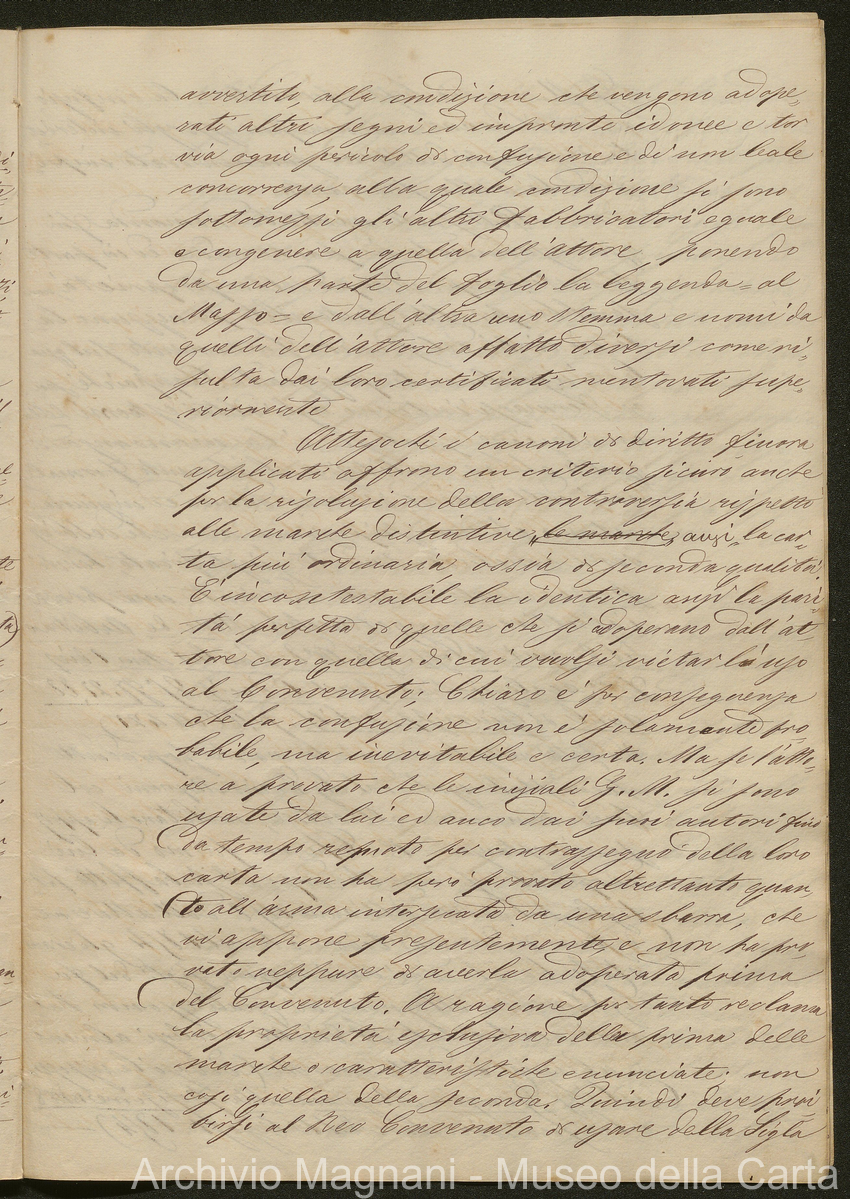 avvertito, alla condizione che vengono adope=
rati altri segni ed impronte idonee a tor
via ogni pericolo di confusione e di non leale
concorrenza, alla quale condizione si sono
sottomessi gli altri fabbricatori eguale
e congenere a quella dell'Attore, ponendo
da una parte del foglio la leggenda = al
Masso = e dall'altra uno Stemma e nomi da
quelli dell'Attore affatto diversi come ri=
sulta dai loro certificati mentovati supe=
riormente
Attesochè i canoni di diritto finora
applicati offrono un criterio sicuro anche
per la risoluzione della controversia rispetto
alle marche distintive, le marche, anzi, la car=
ta più ordinaria ossia di seconda qualità.
E' incontestabile la identica anzi la pari=
tà perfetta di quelle che si adoperano dall'at
tore con quella di cui vuolsi vietar l'uso
al Convenuto; Chiaro è per conseguenza
che la confusione non è solamente pro=
babile, ma inevitabile e certa. Ma se l'atto=
re a provato che le iniziali G. M. si sono
usate da lui ed anco dai suoi autori fino
da tempo remoto per contrassegno della loro
carta non ha però provato altrettanto quan,
to all'arma intersecata da una sbarra, che
vi appone presentemente, e non ha pro=
vato neppure di averla adoperata prima
del Convenuto. A ragione per tanto reclama
la proprietà esclusiva della prima delle
marche o caratteristiche enunciate; non
così quella della seconda. Quindi deve proi=
birsi al Reo Convenuto di usare della Sigla
Archivio Magnani - Museo della Carta